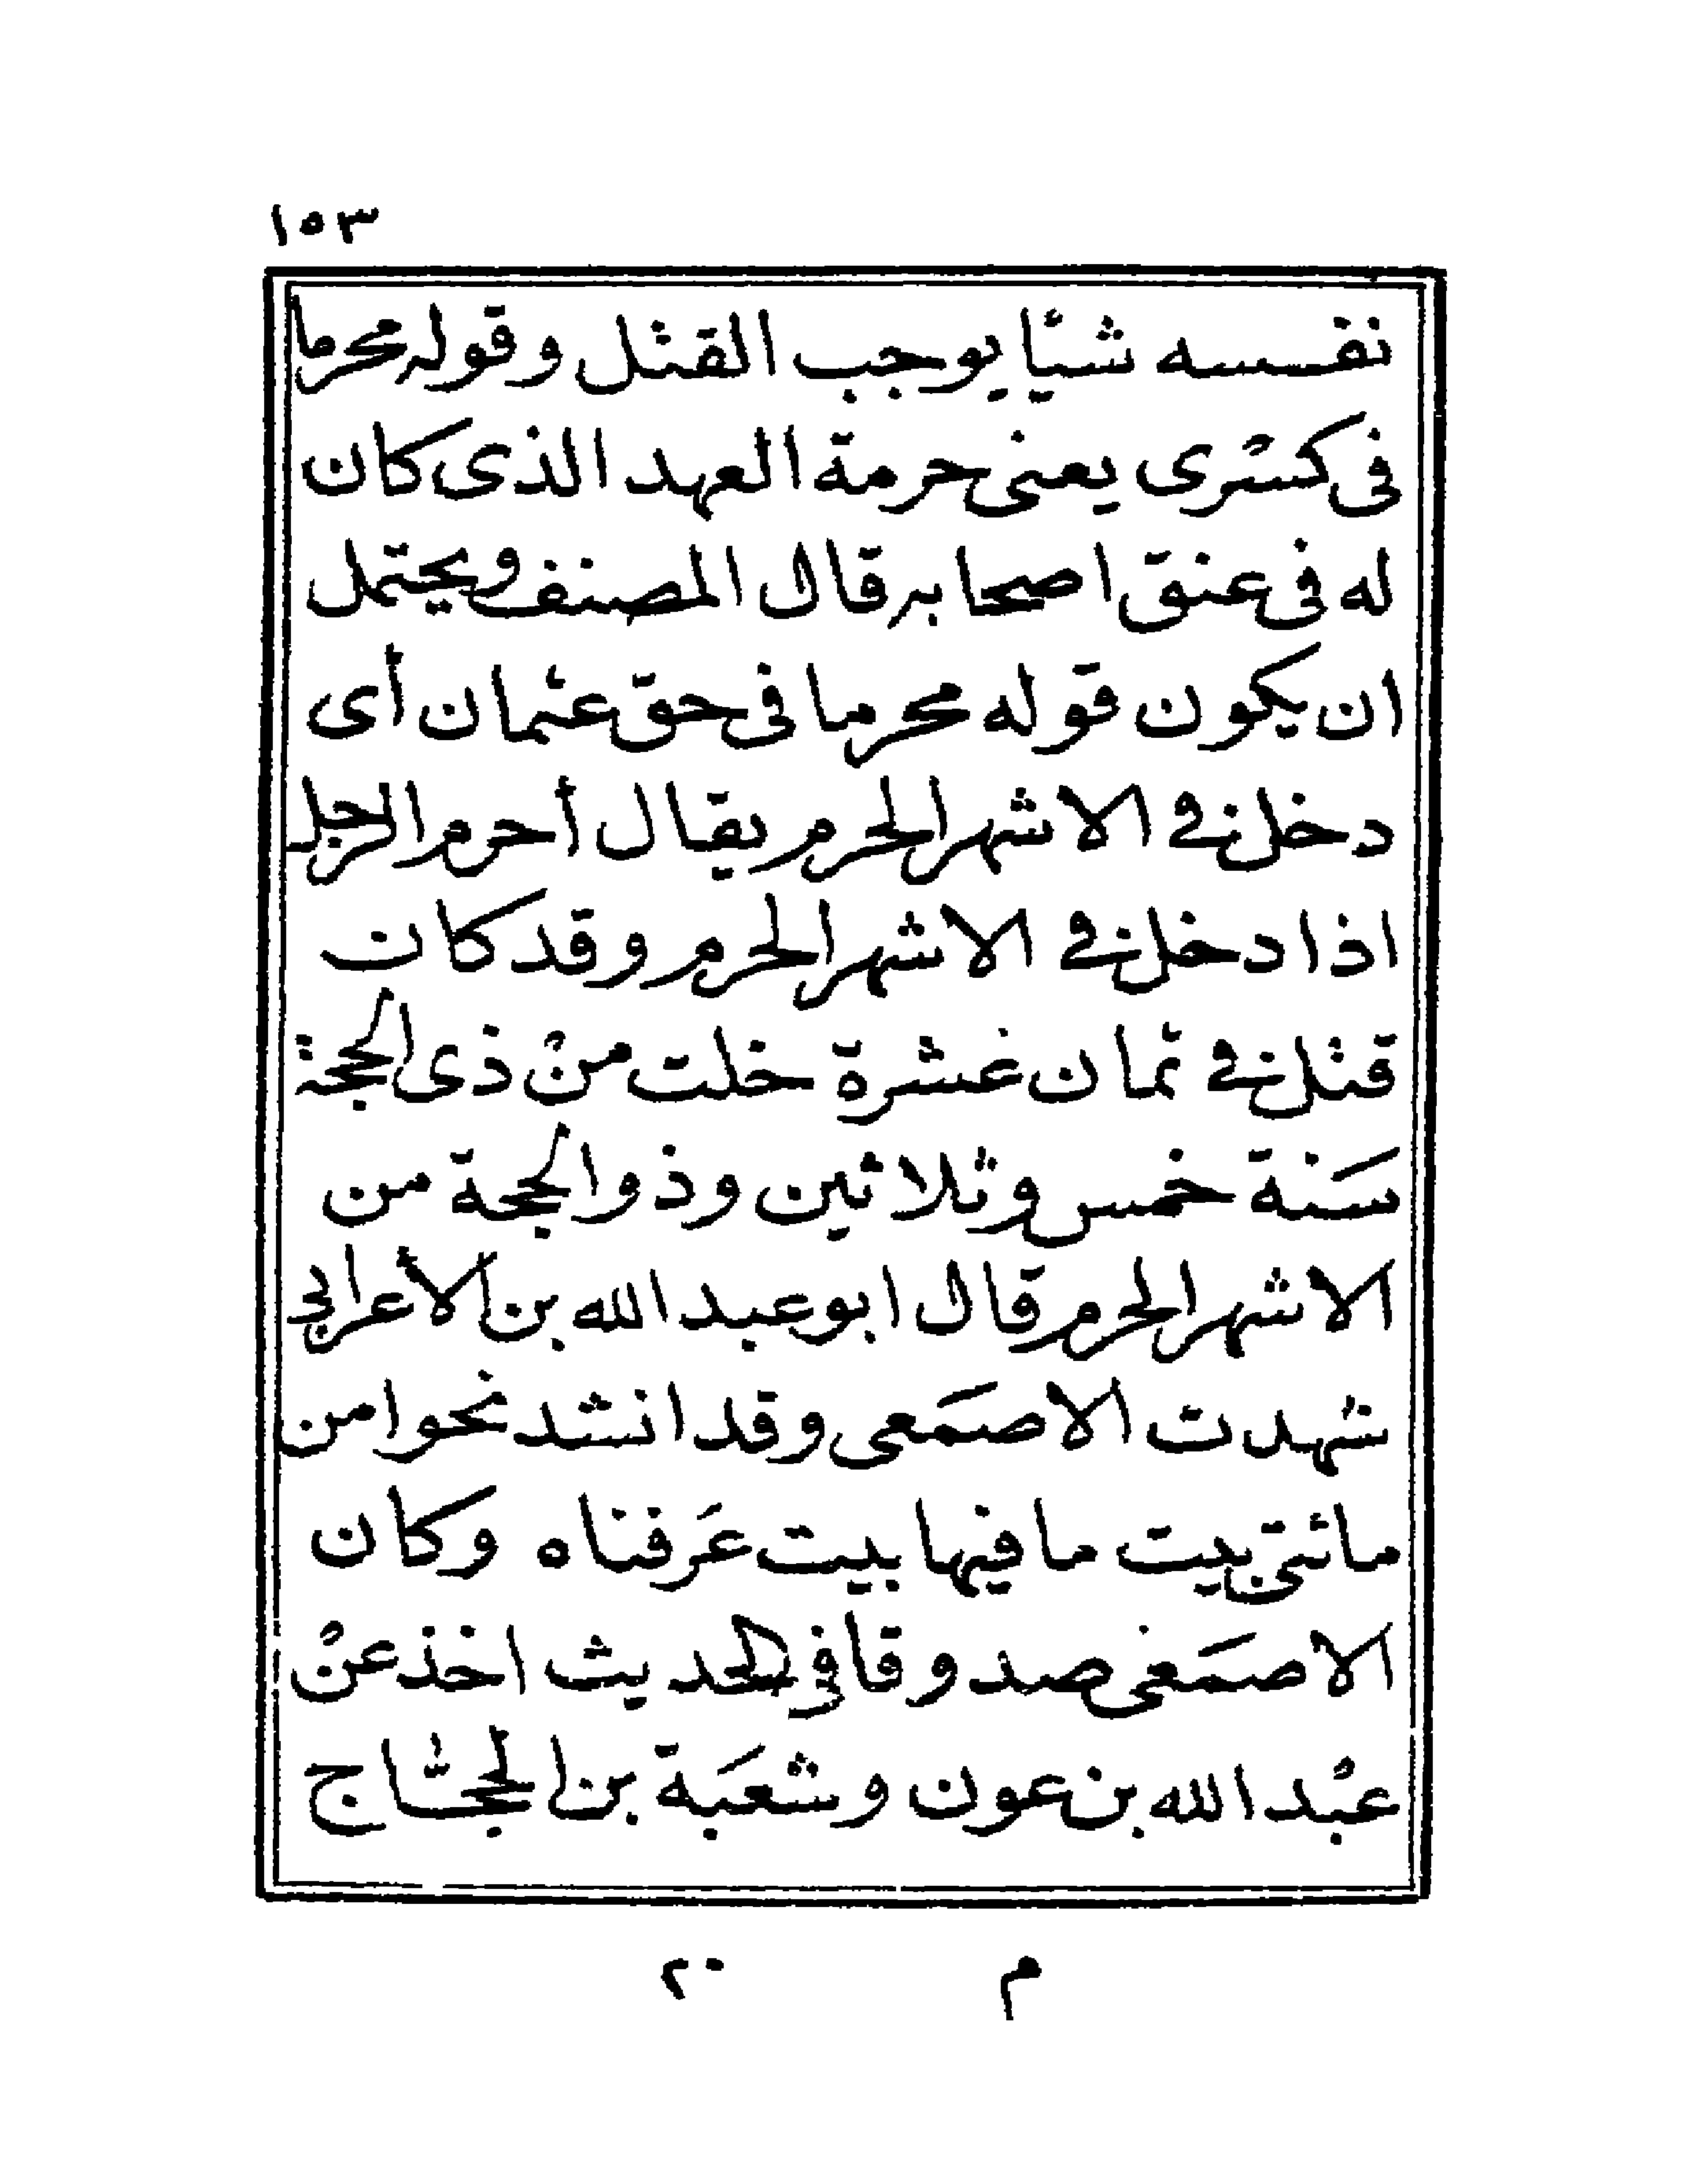 ١٥٣
نفسه شيأ يوجب القتل وقوله محرما
فى كسْرى يعنى حرمة العهد الذى كان
له فى عنق اصحابه قال المصنف ويحتمل
ان يكون قوله محرما فى حق عثمان أى
دخل فى الاشهر الحرم يقال أحرم الرجل
اذا دخل فى الاشهر الحرم وقد كان
قتل فى ثمان عشرة خلت منْ ذى الحجة
سَنة خمس وثلاثين وذو الحجة من
الاشهر الحرم قال ابو عبد الله بن الأعرابى
شهدت الاصمَعى وقد انشد نحوا من
مائتى بيت ما فيها بيت عَرفناه وكان
الاصمَعى صدوقا فى الحديث اخذ عنْ
عبْد الله بن عون وشعبَة بن الحجَّاج
م ٢٠